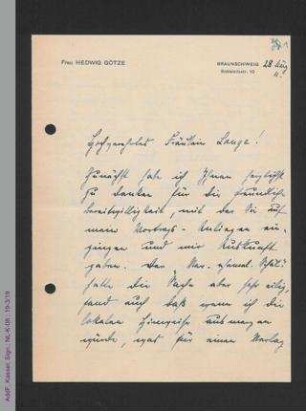 Frau HEDWIG GÖTZE
BRAUNSCHWEIG 28. Aug
Hochverehrtes Fräulein Lange!
Zunächst habe ich Ihnen herzlichst
zu danken für die freundliche
Bereitwilligkeit, mit der Sie auf
meine Vortrags-Anliegen ein-
gingen und mir Auskunft
gaben. Der
hatte die Sache aber sehr eilig,
fand auch daß wenn ich die
lokalen Hinweise ausmerzen
würde, was für einen
AddF, Kassel, Sign.: NL-K-08 ; 19-3/19